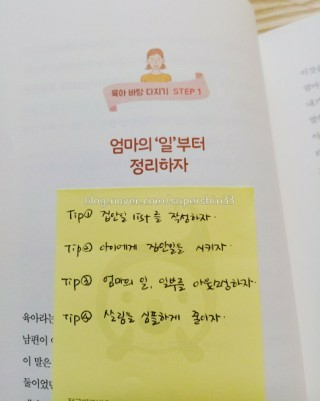 육아 바탕 다지기 STEP 1
엄마의 '일'부터
정리하자
blog.naver.com/supershin33
Tip① 집안일 list를 작성하자.
Tip② 아이에게 집안일을 시키자.
Tip③ 엄마의 일, 일부를 아웃소싱하자.
Tip④ 살림을 심플하게 줄이자.
육아라는
남편이
이 말은
둘이었던